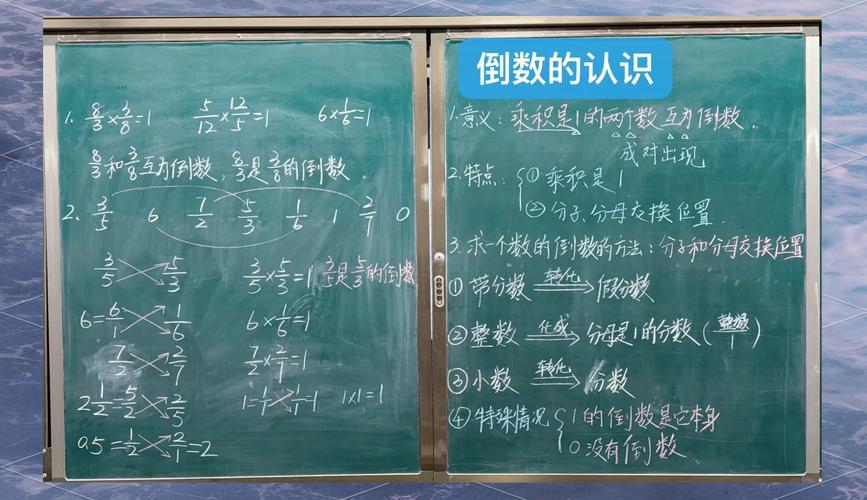 倒数的认识
1. 8/3×3/8=1 5/12×12/5=1 6×1/6=1
8/3和3/8互为倒数,8/3是3/8的倒数.
2. 3/5 6 7/2 5/3 1/6 1 2/7 0
3/5 5/3 3/5×5/3=1 3/5是5/3的倒数
6=6/1 1/6 6×1/6=1
7/2 2/7 7/2×2/7=1
2 1/2=5/2 2/5 1=1/1 1/1=1 1×1=1
0.5=1/2 2/1=2
1.意义:乘积是1的两个数互为倒数.
成对出现
2.特点:①乘积是1
②分子、分母交换位置.
3.求一个数的倒数的方法:分子和分母交换位置
①带分数 转化 假分数
②整数 化成 分母是1的分数(整数/1)
③小数 转化 分数
④特殊情况 1的倒数是它本身
0没有倒数